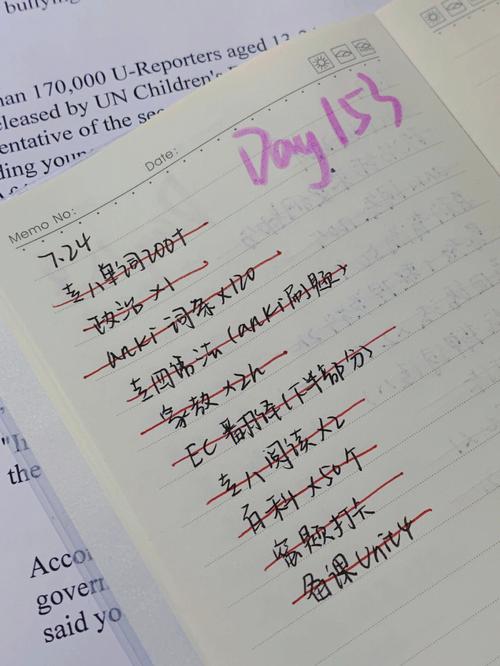 bullying
han 170,000 U-Reporters aged 13-2
eleased by UN Children's
entative of the sec
ding youn
Memo No:
Date:
Day 153
7.24
专八单词200个
政治×1
anki 词条×120
专四语法(anki刷题)
家教×2h
EC翻译(下半部分)
专八阅读×2
百科×50个
客题打卡
备课Unit4
"In
the
Accor
govern
said yo